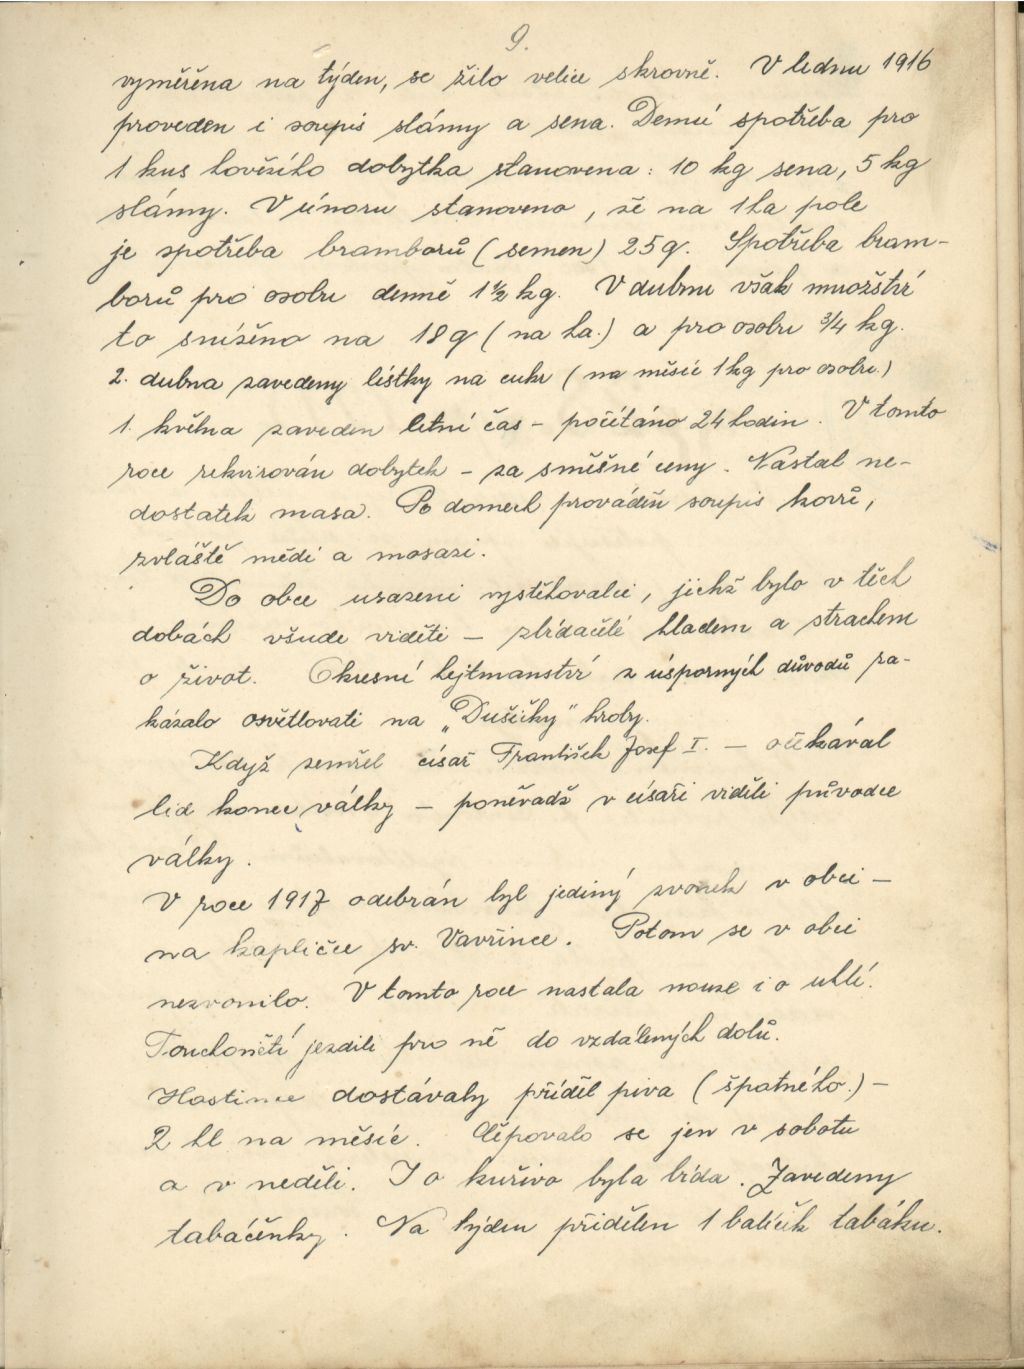 9.
vyměřena na týden, se žilo velice skrovně. V lednu 1916
proveden i soupis slámy a sena. Denní spotřeba pro
1 kus hovězího dobytka stanovena: 10 kg sena, 5 kg
slámy. V únoru stanoveno, že na 1 ha pole
je spotřeba bramborů (semen) 25 q. Spotřeba bram-
borů pro osobu denně 1 1/2 kg. V dubnu však množství
to sníženo na 18 q (na ha.) a pro osobu 3/4 kg.
2. dubna zavedeny lístky na cukr (na měsíc 1 kg pro osobu.)
1. května zaveden letní čas - počítáno 24 hodin. V tomto
roce rekvirován dobytek - za směšné ceny. Nastal ne-
dostatek masa. Po domech prováděn soupis kovů,
zvláště mědi a mosazi.
Do obce usazeni vystěhovalci, jichž bylo v těch
dobách všude viděti - zbídačelí hladem a strachem
o život. Okresní hejtmanství z úsporných důvodů za-
kázalo osvětlovati na „Dušičky" hroby.
Když zemřel císař František Josef I. - očekával
lid konec války - poněvadž v císaři viděli původce
války.
V roce 1917 odebrán byl jediný zvonek v obci -
na kapličce sv. Vavřince. Potom se v obci
nezvonilo. V tomto roce nastala nouze i o uhlí.
Touchovičtí jezdili pro ně do vzdálených dolů.
Hostince dostávaly příděl piva (špatného.) -
2 hl na měsíc. Čepovalo se jen v sobotu
a v neděli. I o kuřivo byla bída. Zavedeny
tabáčenky. Na týden přidělen 1 balíček tabáku.